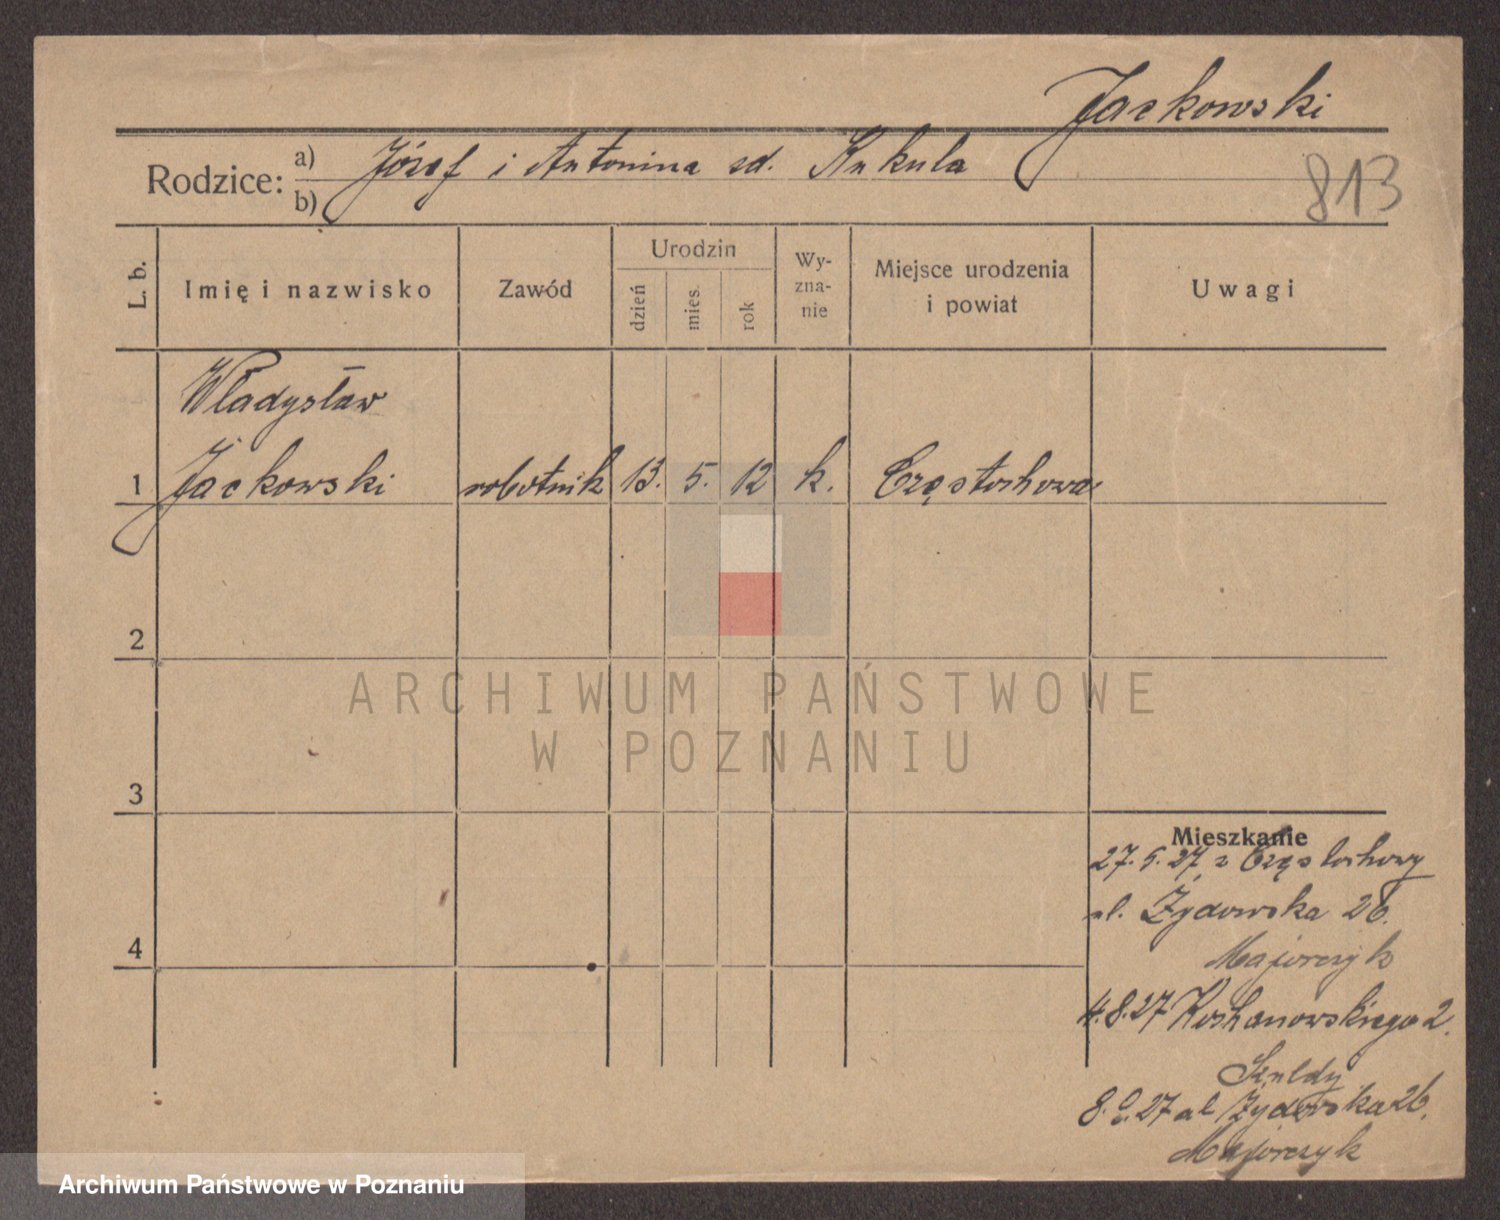 Jackowski
Rodzice: a) Józef i Antonina sd. Kukula
b)
813
L. b.
Imię i nazwisko
Zawód
Urodzin
dzień
mies.
rok
Wy-
zna-
nie
Miejsce urodzenia
i powiat
Uwagi
Władysław
1 Jackowski robotnik 13. 5. 12 k. Częstochowa
2
ARCHIWUM PAŃSTWOWE
W POZNANIU
3
Mieszkanie
27. 5. 27 z Częstochowy
ul. Żydowska 26.
Majorczyk
4
4. 8. 27 Kochanowskiego 2.
8. 27 ul Żydowska 26.
Majorczyk
Archiwum Państwowe w Poznaniu